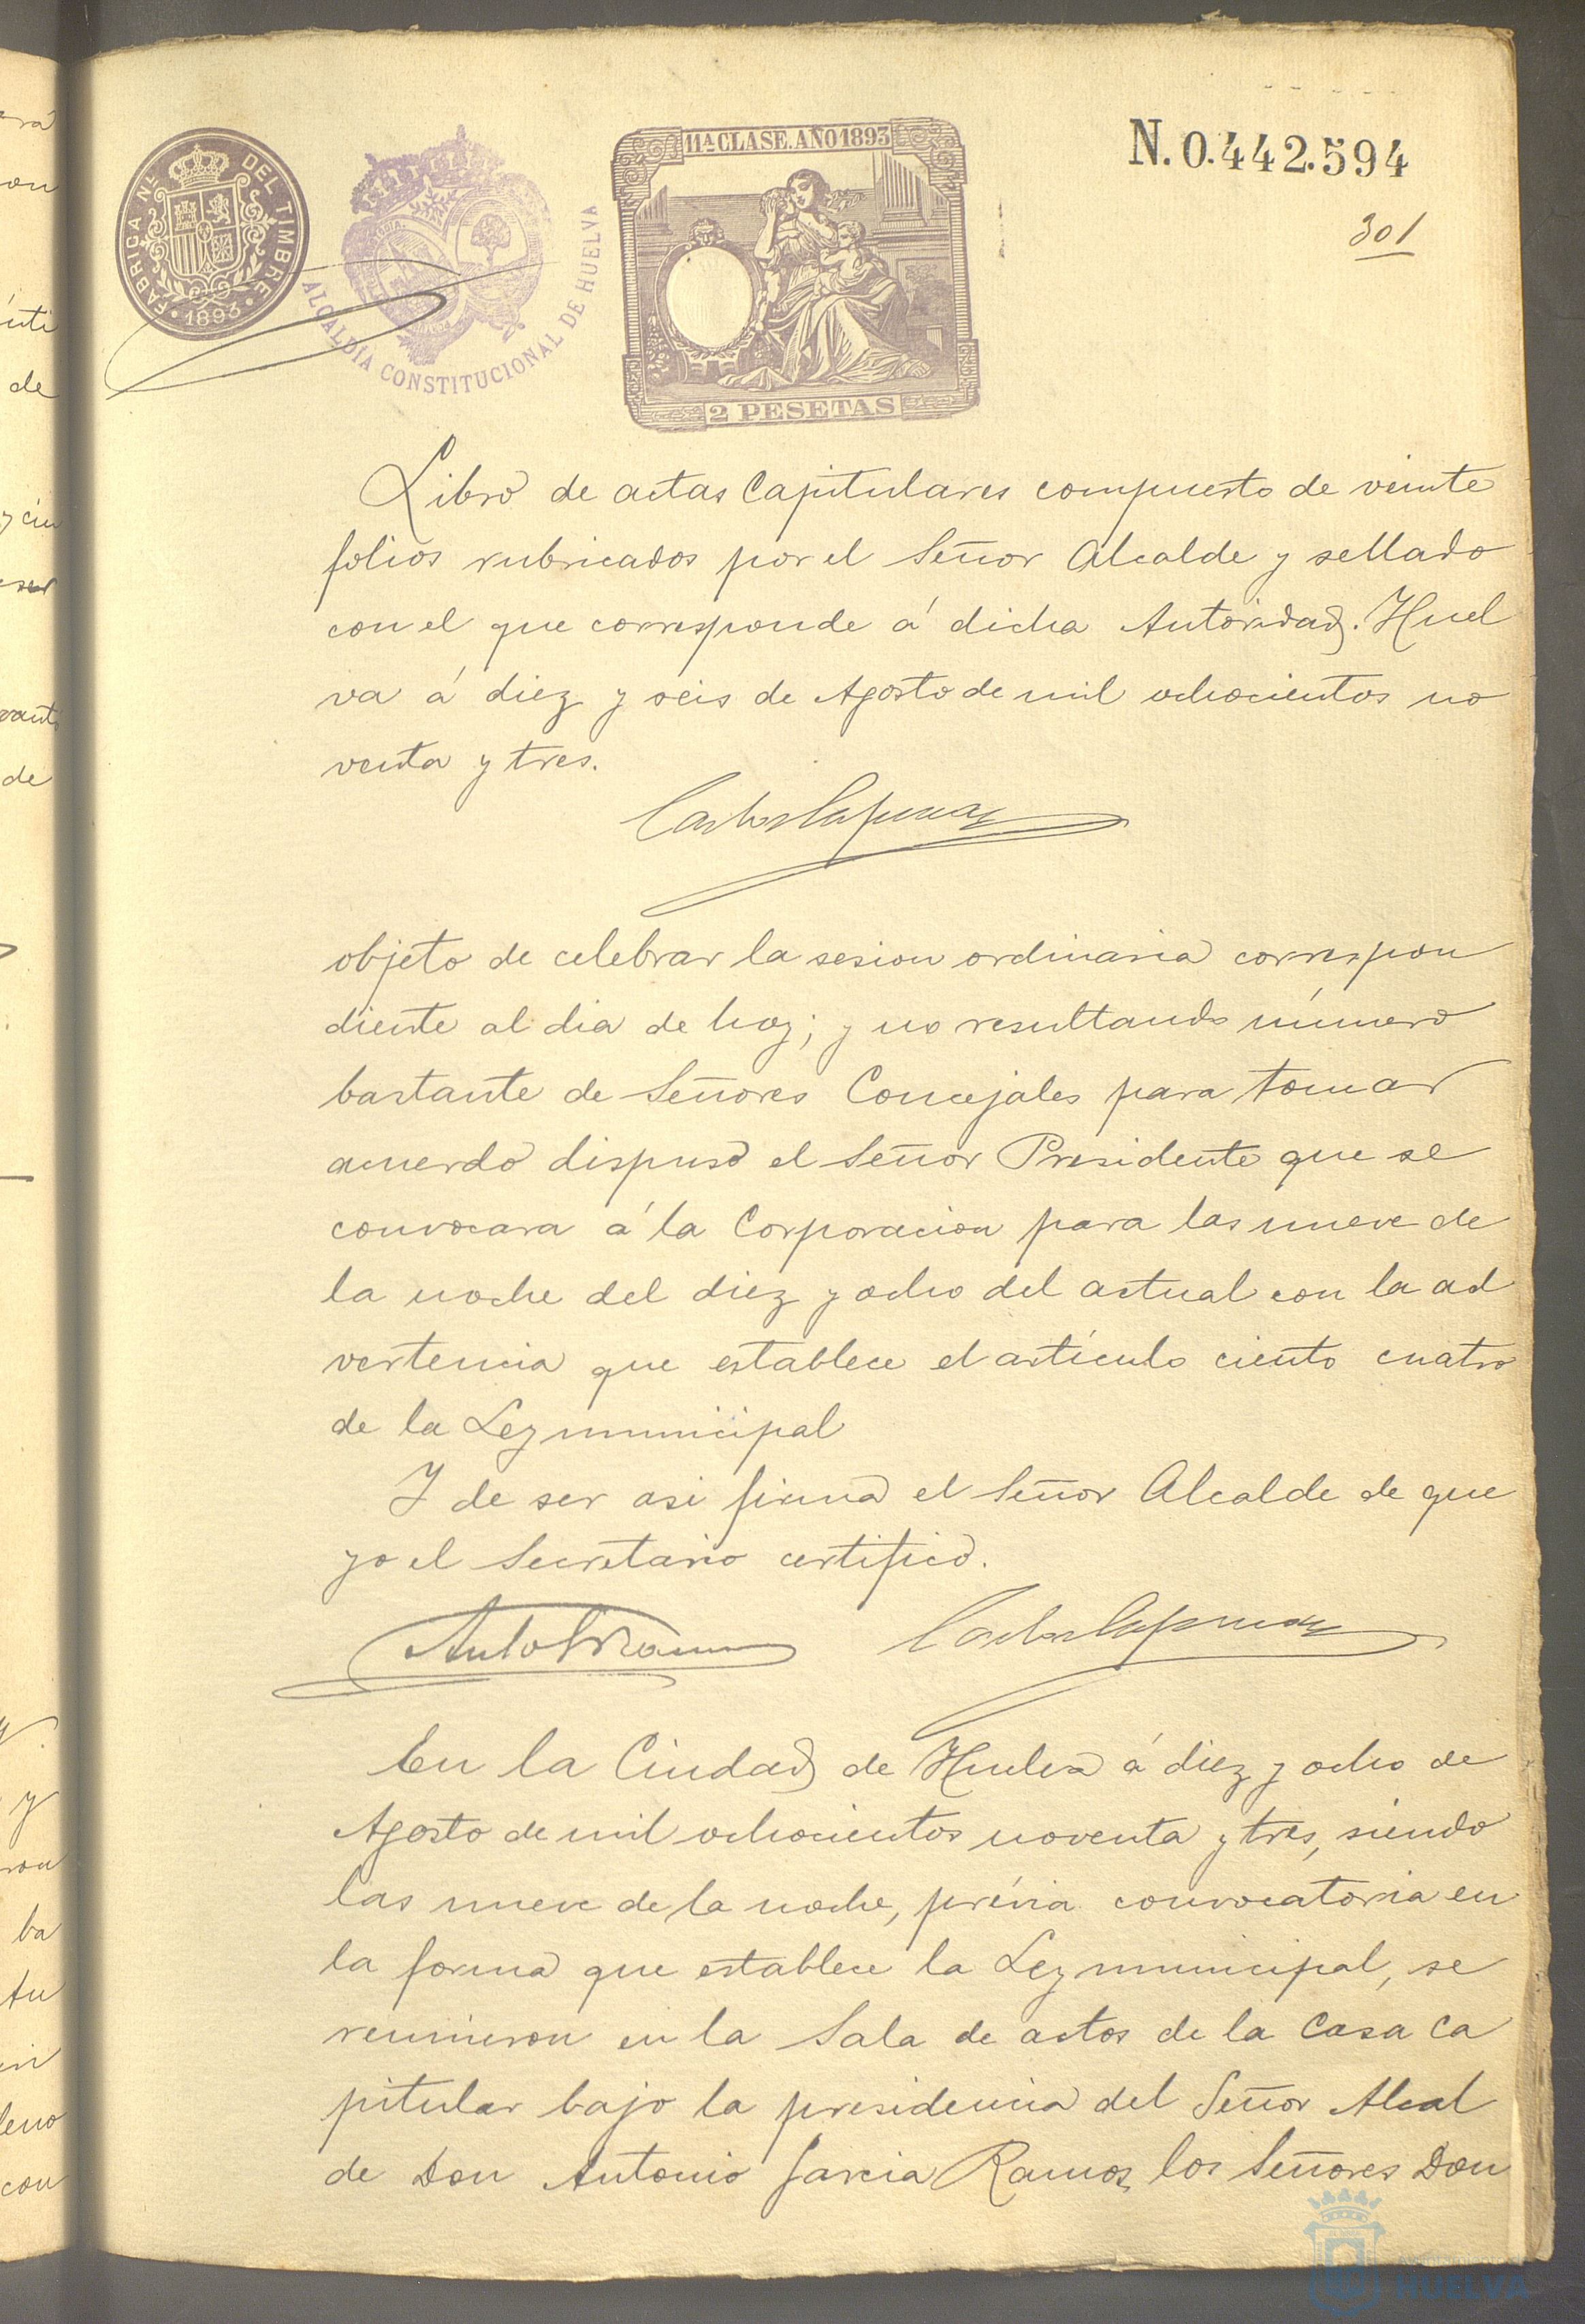 FABRICA NL DEL TIMBRE
1893
ALCALDÍA CONSTITUCIONAL DE HUELVA
11ª CLASE. AÑO 1893
2 PESETAS
N. 0.442.594
301
Libro de actas Capitulares compuesto de veinte
folios rubricados por el Señor Alcalde y sellado
con el que corresponde á dicha Autoridad. Huel
va á diez y seis de Agosto de mil ochocientos no
venta y tres.
objeto de celebrar la sesion ordinaria correspon
diente al dia de hoy; y no resultando número
bastante de Señores Concejales para tomar
acuerdo dispuso el Señor Presidente que se
convocara á la Corporacion para las nueve de
la noche del diez y ocho del actual con la ad
vertencia que establece el artículo ciento cuatro
de la Ley municipal
Y de ser asi firma el Señor Alcalde de que
yo el Secretario certifico.
En la Ciudad de Huelva á diez y ocho de
Agosto de mil ochocientos noventa y tres, siendo
las nueve de la noche, prévia convocatoria en
la forma que establece la Ley municipal, se
reunieron en la Sala de actos de la Casa Ca
pitular bajo la presidencia del Señor Alcal
de Don Antonio Garcia Ramos, los Señores Don
HUELVA